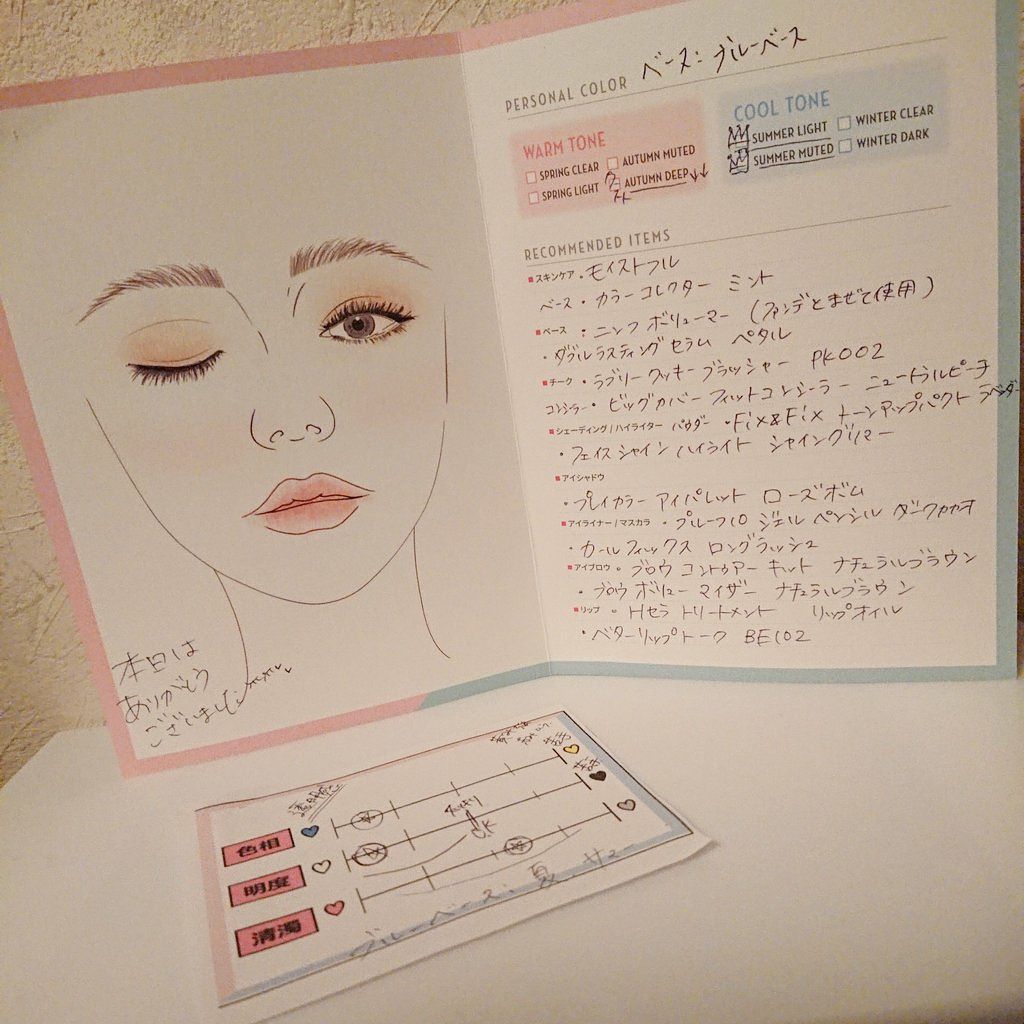 PERSONAL COLOR ベース: ブルーベース
WARM TONE
SPRING CLEAR AUTUMN MUTED
SPRING LIGHT AUTUMN DEEP ↓↓
COOL TONE
SUMMER LIGHT WINTER CLEAR
SUMMER MUTED WINTER DARK
RECOMMENDED ITEMS
スキンケア・モイストフル
ベース・カラーコレクター ミント
ベース : ニンフ ボリューマー (ファンデとまぜて使用)
・ダブルラスティング セラム ペタル
チーク・ラブリー クッキー ブラッシャー PK002
コンシーラー・ビッグカバー フィットコンシーラー ニュートラルピーチ
シェーディング/ハイライター パウダー ・Fix&Fix トーンアップパクト ラベンダー
・フェイスシャイン ハイライト シャイングリマー
アイシャドウ
・プレイカラー アイパレット ローズボム
アイライナー/マスカラ ・プルーフ10 ジェル ペンシル ダークカカオ
・カールフィックス ロングラッシュ
アイブロウ・ブロウ コントゥアー キット ナチュラルブラウン
・ブロウ ボリューマイザー ナチュラルブラウン
リップ ・Hセラ トリートメント リップオイル
・ベターリップトーク BE102
本日は
ありがとう
ございました
透明感
色相
明度
OK
清濁
ブルーベース: 夏 サマー